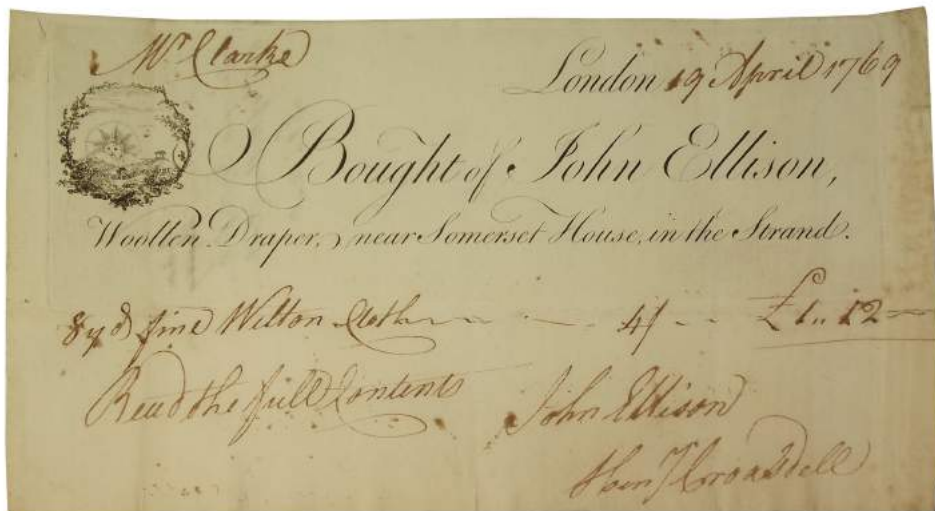 Mr Clarke
London 19 April 1769
Bought of John Ellison,
Woollen Draper, near Somerset House, in the Strand.
8 yds fine Wilton Cloth 4/ £1.. 12
Recd the full Contents
John Ellison
Heny Croasdell